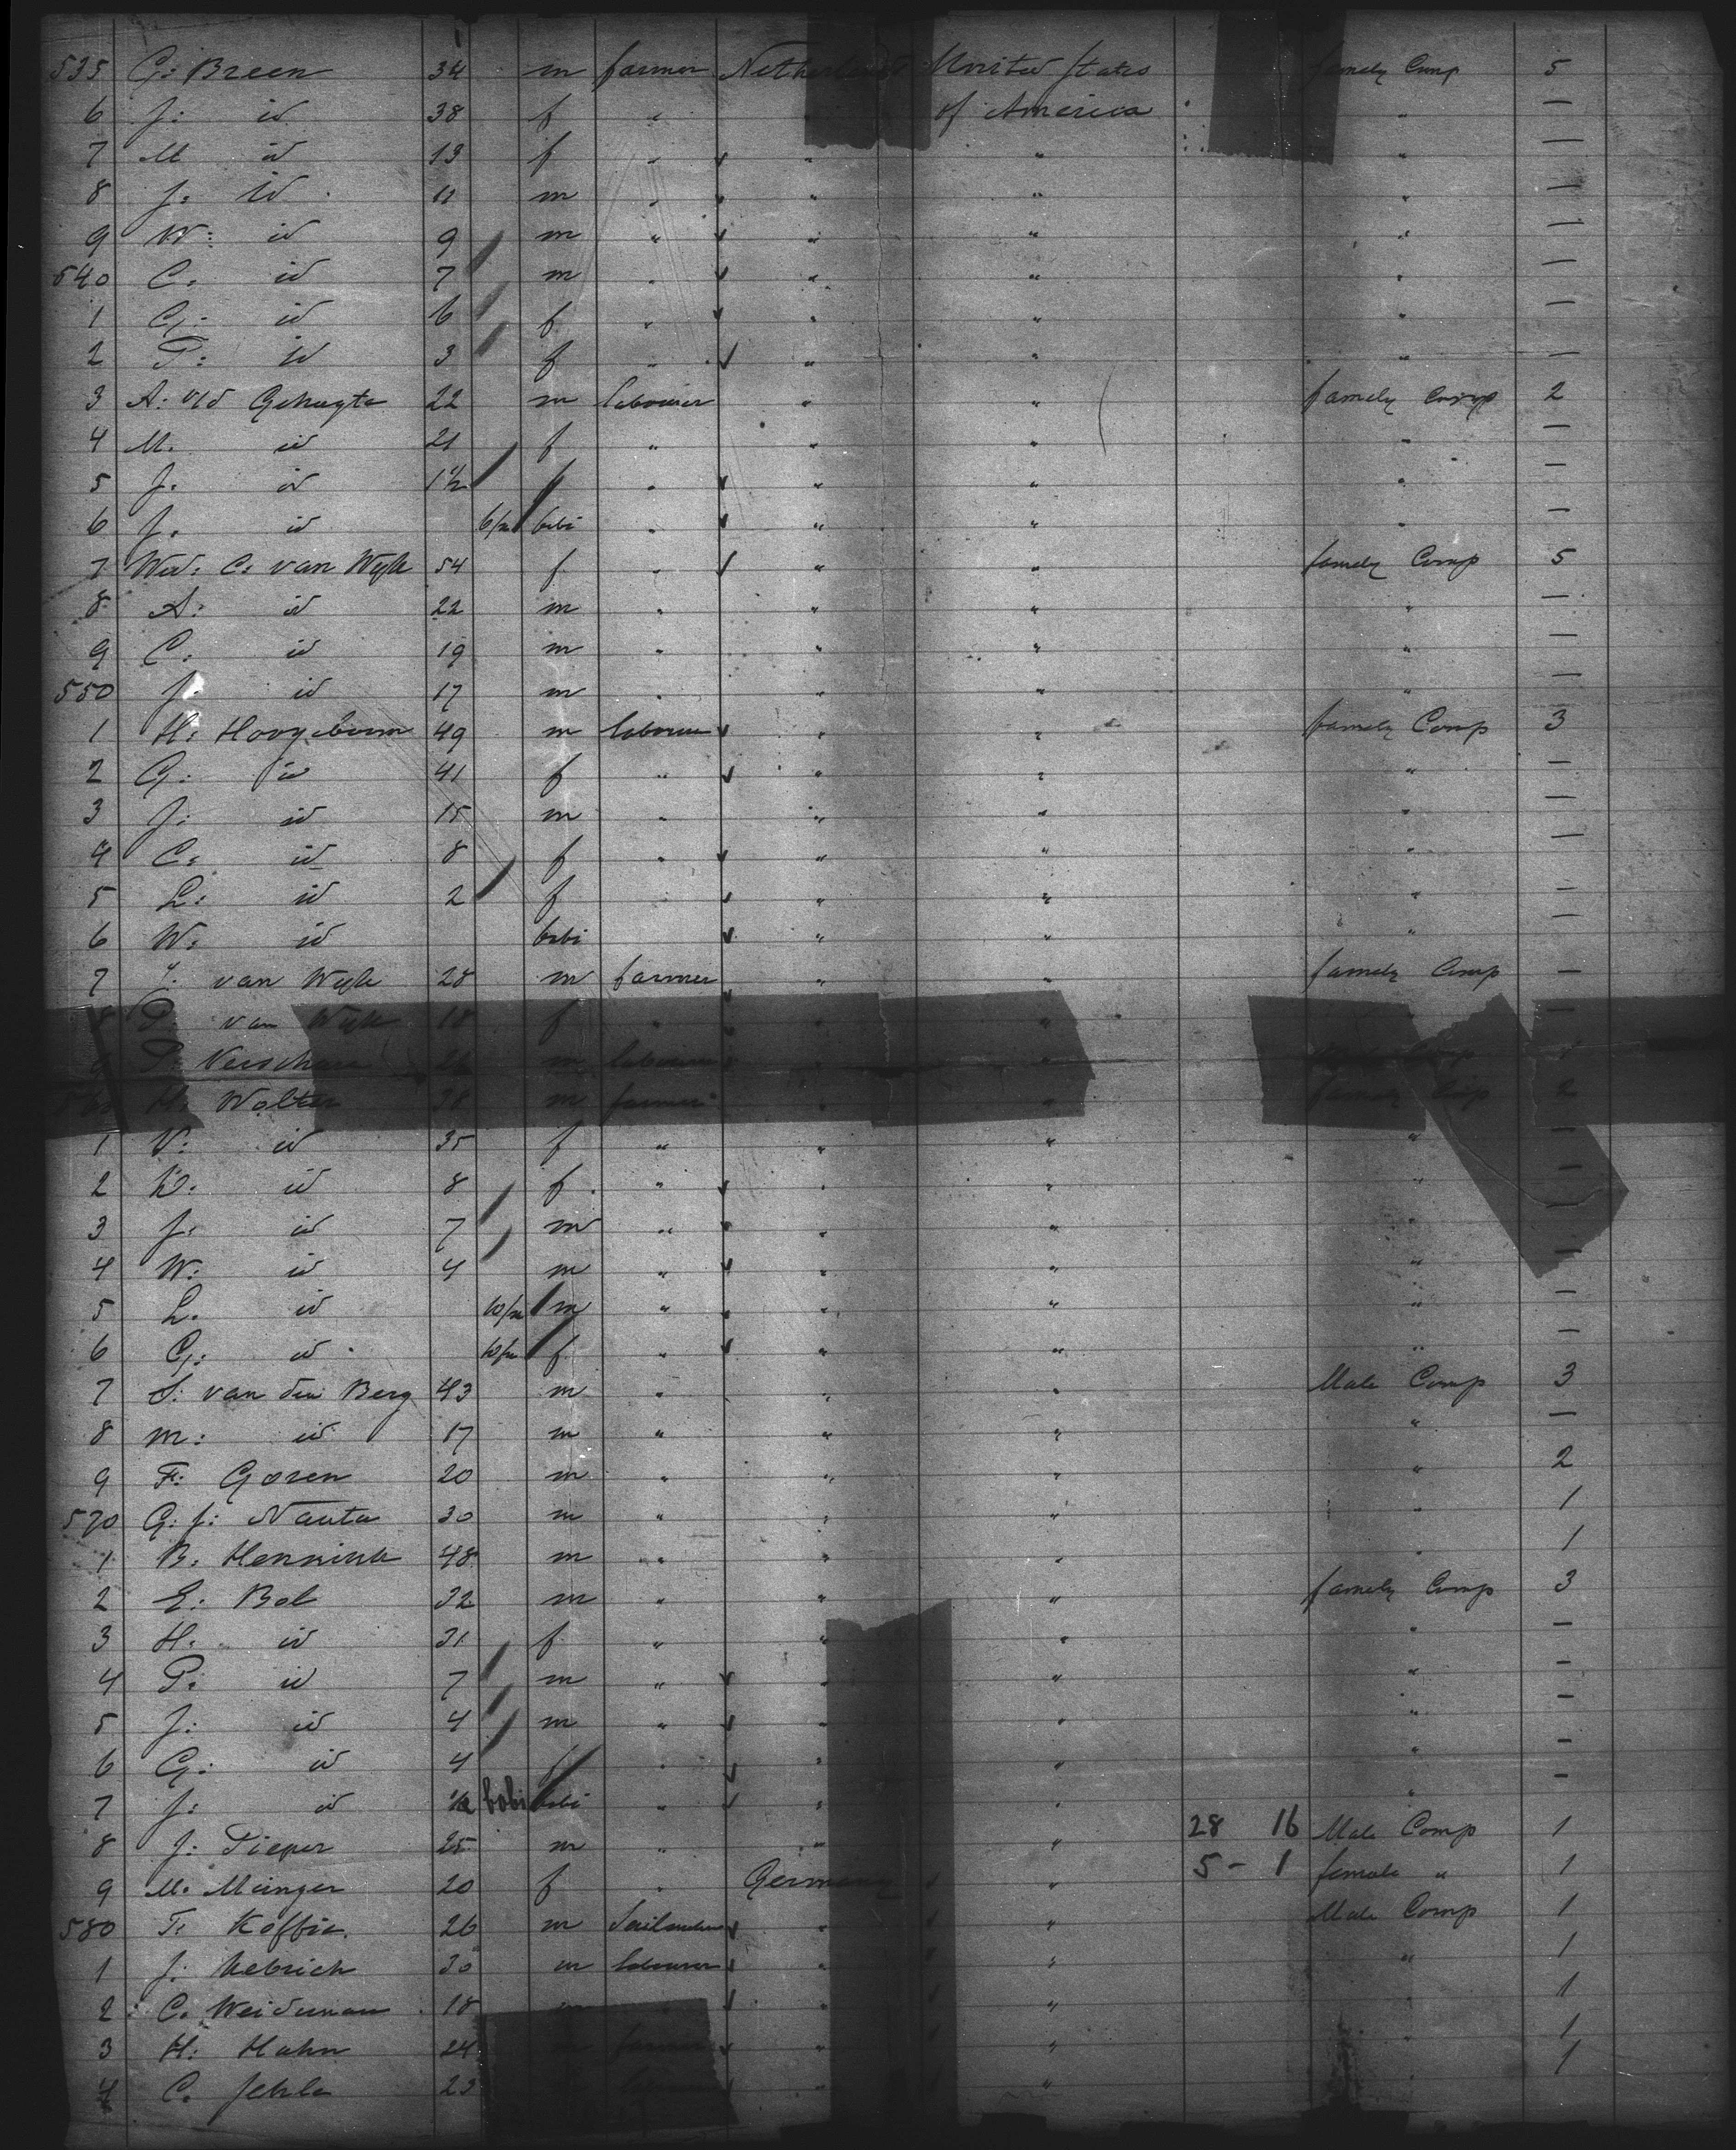 535 G: Breen 34 m farmer Netherland United States family Comp 5
6 J: id 38 f " of America " —
7 M id 13 f " " " " —
8 J: id 11 m " " " " —
9 W: id 9 m " " " " —
540 C: id 7 m " " " " —
1 G: id 6 f " " " " —
2 P: id 3 f " " " " —
3 A: v/d Gehugte 22 m labourer " " famely Comp 2
4 M. id 21 f " " " " —
5 J. id 1½ f " " " " —
6 J. id 6/m bebi " " " " —
7 Wed: C: van Wijk 54 f " " " famely Comp 5
8 A: id 22 m " " " " —
9 C: id 19 m " " " " —
550 J: id 17 m " " " " —
1 H: Hoogeboom 49 m labourer " " famely Comp 3
2 G: id 41 f " " " " —
3 J: id 15 m " " " " —
4 C: id 8 f " " " " —
5 L: id 2 f " " " —
6 W: id bebi " " " —
7 van Wijk 28 m farmer " " famely Comp —
8 P. van Wijk 18 f " " " —
9 P: m labourer " "
H. Wolter 38 m farmer " " famely Comp 2
1 V: id 35 f " " " " —
2 D: id 8 f " " " " —
3 J: id 7 m " " " " —
4 W: id 4 m " " " " —
5 L. id 10/m m " " " " —
6 G: id 10/m f " " " " —
7 S: van den Berg 43 m " " " Male Comp 3
8 m: id 17 m " " " " —
9 F: Goren 20 m " " " " 2
570 G: J: Nauta 30 m " " " " 1
1 B. Hennink 48 m " " " " 1
2 E: Bol 32 m " " " famely Comp 3
3 H. id 31 f " " " " —
4 P: id 7 m " " " " —
5 J: id 4 m " " " " —
6 G: id 4 f " " " " —
7 J: id ½ bebi bebi " " " " —
8 J: Pieper 25 m " " " 28 16 Male Comp 1
9 M. Munger 20 f " Germany " 5 - 1 female " 1
580 T: Koffie. 26 m " " Male Comp 1
1 J: Uebrich 30 m labourer " " " 1
2 C. Weideman 18 m " " " 1
3 H: Hahn 24 m farmer " " " 1
4 C. Jehle 23 " " " 1